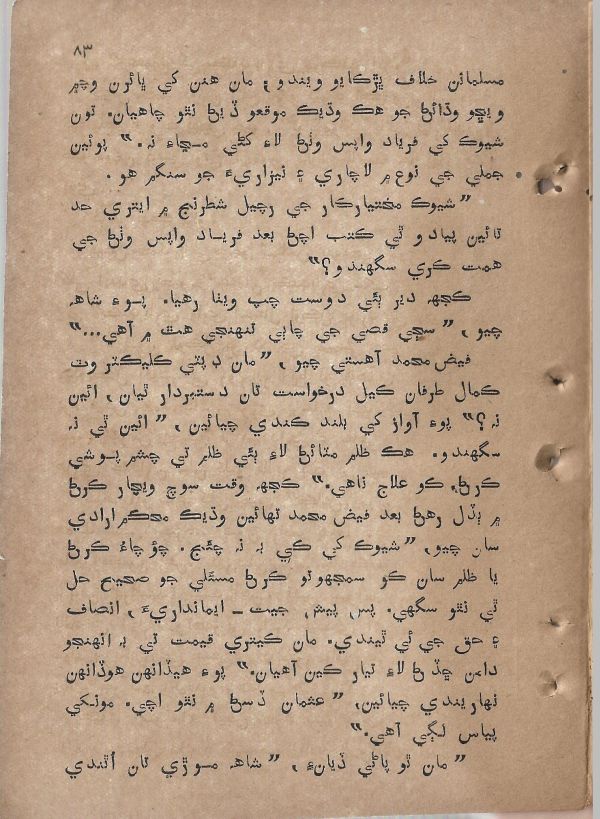 ۸۳
مسلمانن خلاف ڀڙڪايو ويندو، مان هنن کي ڀائرن وچ ۾
ويڇو وڌائڻ جو هڪ وڌيڪ موقعو ڏيڻ نٿو چاهيان. تون
شيوڪ کي فرياد واپس وٺڻ لاءِ کڻي مڃاءِ نہ.“ پوئين
جملي جي نوع ۾ لاچاري ۽ نيزاريءَ جو سنگم هو.
”شيوڪ مختيارڪار جي رچيل شطرنج ۾ ايتري حد
تائين پيادو ٿي ڪتب اچڻ بعد فرياد واپس وٺڻ جي
همت ڪري سگهندو؟“
ڪجهہ دير ٻئي دوست چپ ويٺا رهيا. پوءِ شاهہ
چيو، ”سڄي قصي جي چاٻي تنهنجي هٿ ۾ آهي...“
فيض محمد آهستي چيو، ”مان ڊپٽي ڪليڪٽر وٽ
ڪمال طرفان ڪيل درخواست تان دستبردار ٿيان، ائين
نہ؟“ پوءِ آواز کي بلند ڪندي چيائين، ”ائين ٿي نہ
سگهندو. هڪ ظلم مٽائڻ لاءِ ٻئي ظلم تي چشم پوشي
ڪرڻ، ڪو علاج ناهي.“ ڪجهہ وقت سوچ ويچار ڪرڻ
۾ ٻڏل رهڻ بعد فيض محمد تهائين وڌيڪ محڪم ارادي
سان چيو، ”شيوڪ کي کي بہ نہ چئج. چؤچاءُ ڪرڻ
يا ظلم سان ڪو سمجهوتو ڪرڻ مسئلي جو صحيح حل
ٿي نٿو سگهي. پس پيش، جيت ـ ايمانداريءَ، انصاف
۽ حق جي ئي ٿيندي. مان ڪيتري قيمت تي بہ انهنجو
دامن ڇڏڻ لاءِ تيار ڪين آهيان.“ پوءِ هيڏانهن هوڏانهن
نهاريندي چيائين، ”عثمان ڏسڻ ۾ نٿو اچي. مونکي
پياس لڳي آهي.“
”مان ٿو پاڻي ڏيان،“ شاهہ موڙي تان اُٿندي